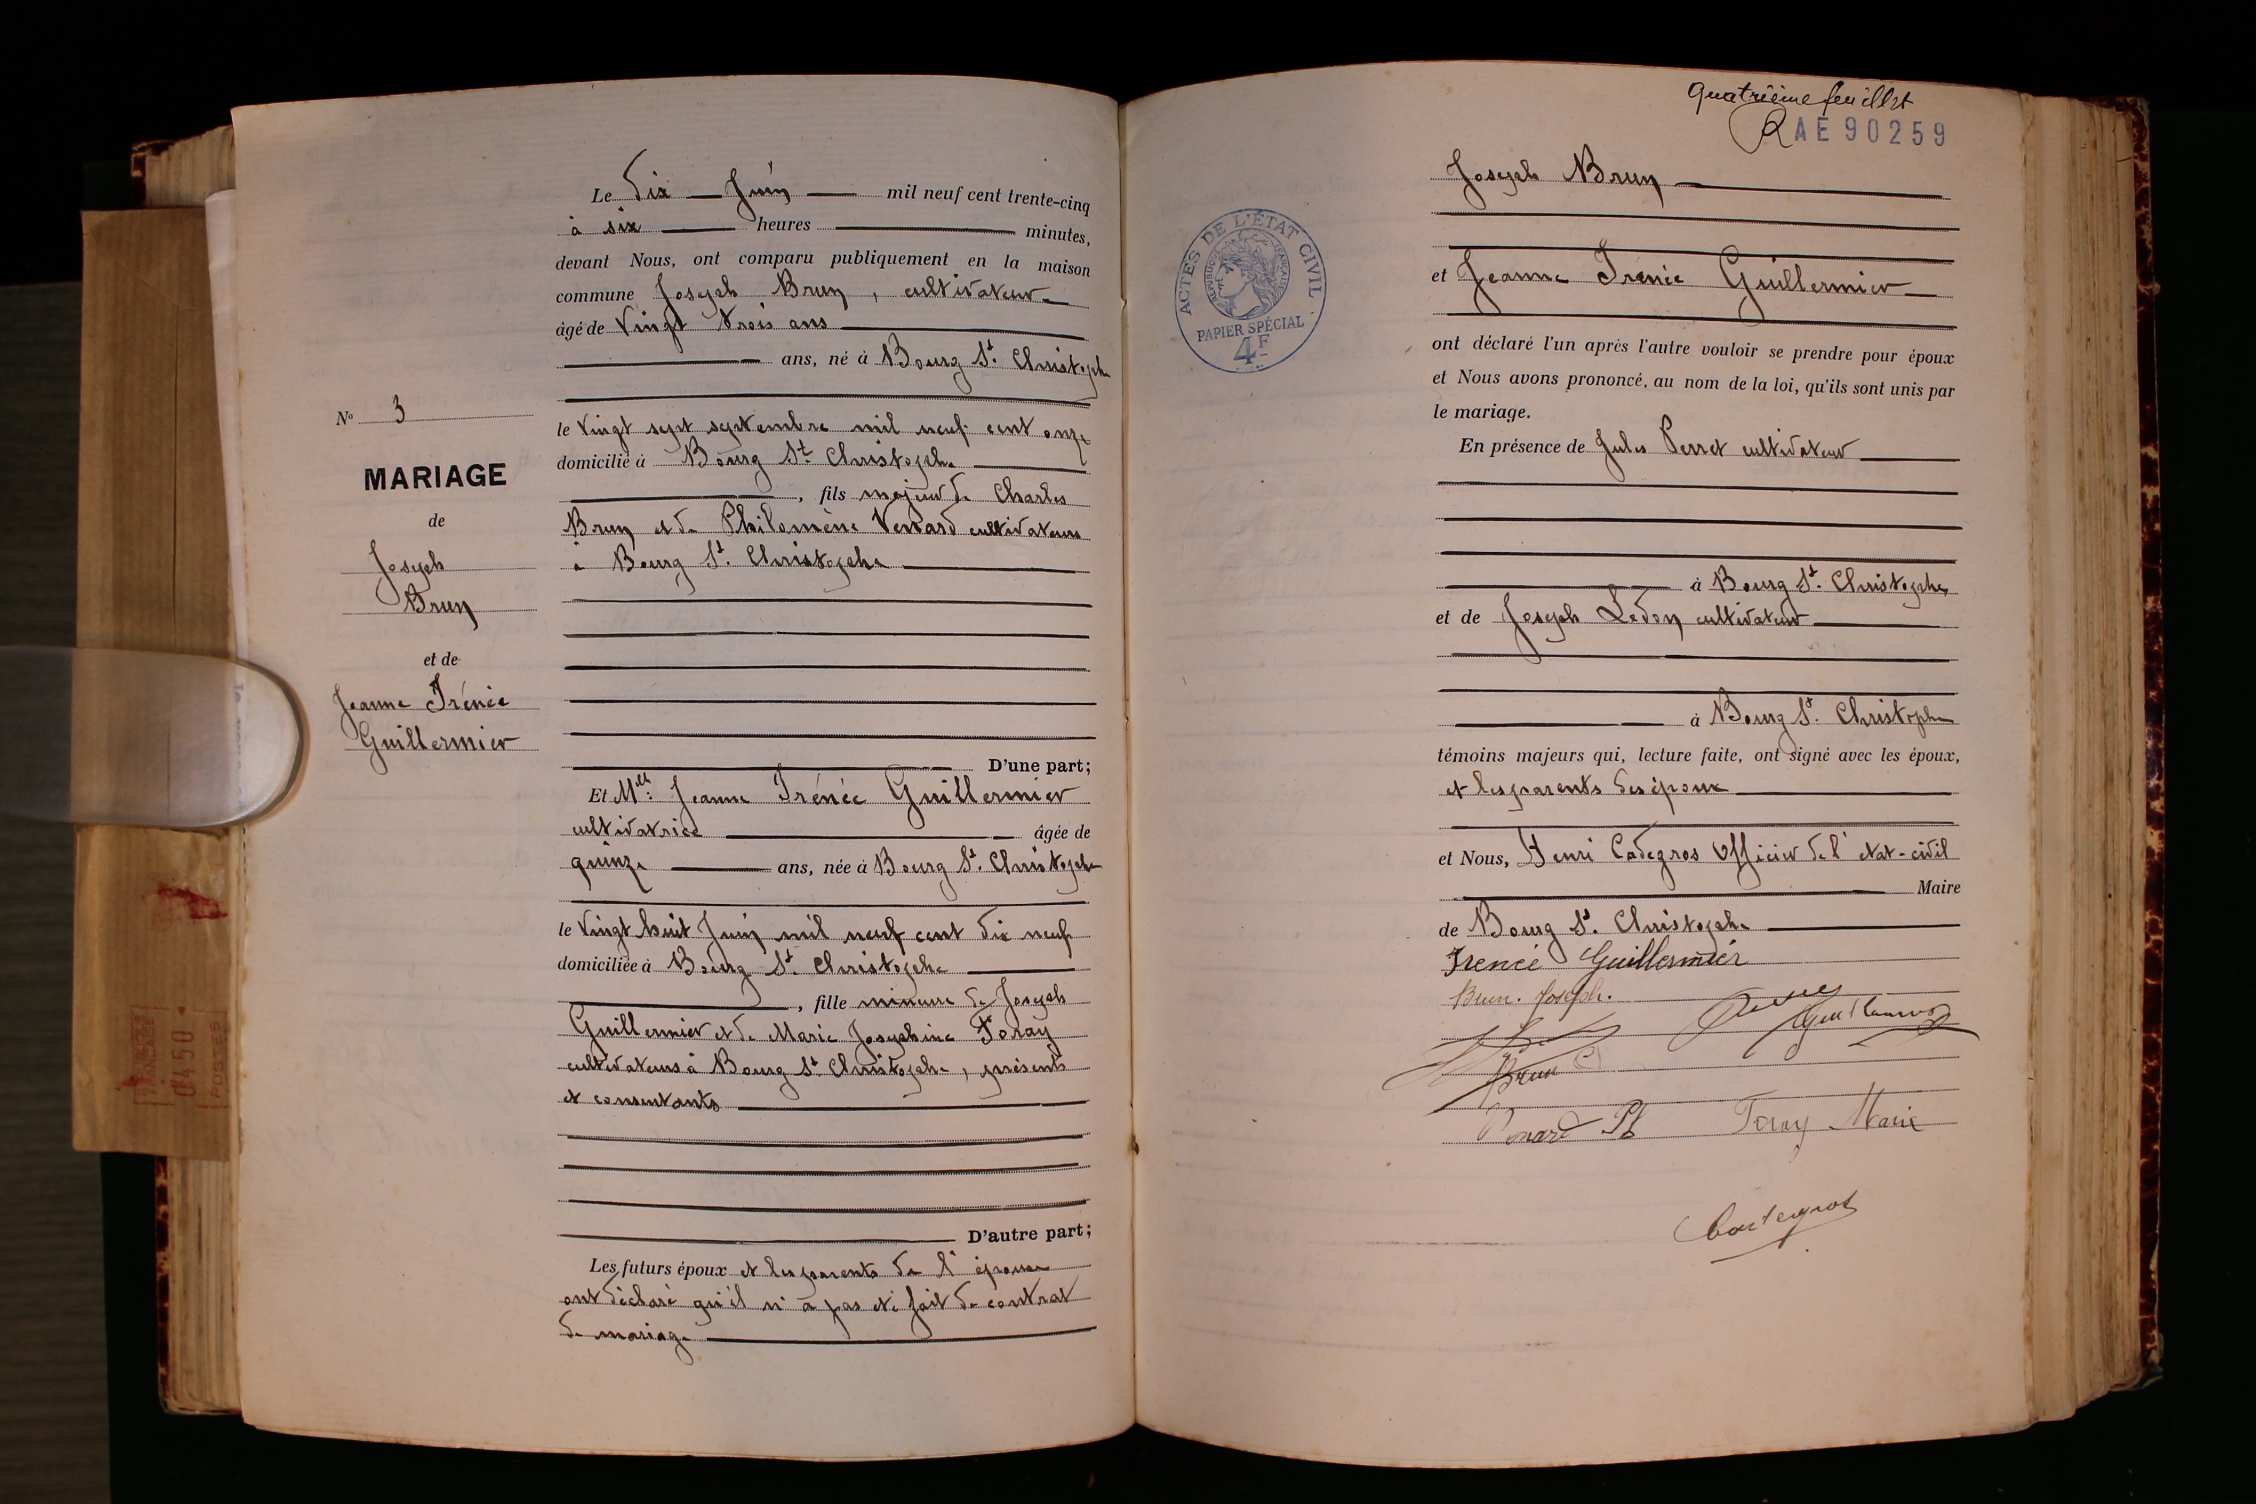 Le dix Juin mil neuf cent trente-cinq
à six heures minutes,
devant Nous, ont comparu publiquement en la maison
commune Joseph Brun, cultivateur
âgé de Vingt trois ans
ans, né à Bourg St. Christophe
le Vingt sept septembre mil neuf cent onze
domicilié à Bourg St Christophe
, fils majeur de Charles
Brun et de Philomène Venard cultivateurs
à Bourg St. Christophe
D'une part;
Et Mlle: Jeanne Irénée Guillermier
cultivatrice âgée de
quinze ans, née à Bourg St. Christophe
le Vingt huit Juin mil neuf cent dix neuf
domiciliée à Bourg St. Christophe
, fille mineure de Joseph
Guillermier et de Marie Josephine Foray
cultivateurs à Bourg St. Christophe, présents
et consentants
D'autre part;
Les futurs époux et les parents de l'épouse
ont déclaré qu'il n'a pas eté fait de contrat
de mariage
No 3
MARIAGE
de
Joseph
Brun
et de
Jeanne Irénée
Guillermier
0450
POSTES
Quatrième feuillet
AE90259
ACTES DE L'ÉTAT CIVIL
RÉPUBLIQUE FRANÇAISE
PAPIER SPÉCIAL
4F
Joseph Brun
et Jeanne Irénée Guillermier
ont déclaré l'un après l'autre vouloir se prendre pour époux
et Nous avons prononcé, au nom de la loi, qu'ils sont unis par
le mariage.
En présence de Jules Perret cultivateur
à Bourg St. Christophe
et de Joseph Ledon cultivateur
à Bourg St. Christophe
témoins majeurs qui, lecture faite, ont signé avec les époux,
et les parents des époux
et Nous, Henri Cadegros Officier de l'etat-civil
Maire
de Bourg St. Christophe
Irenée Guillermier
Brun. Joseph.
Brun C
Venard Ph Foray Marie